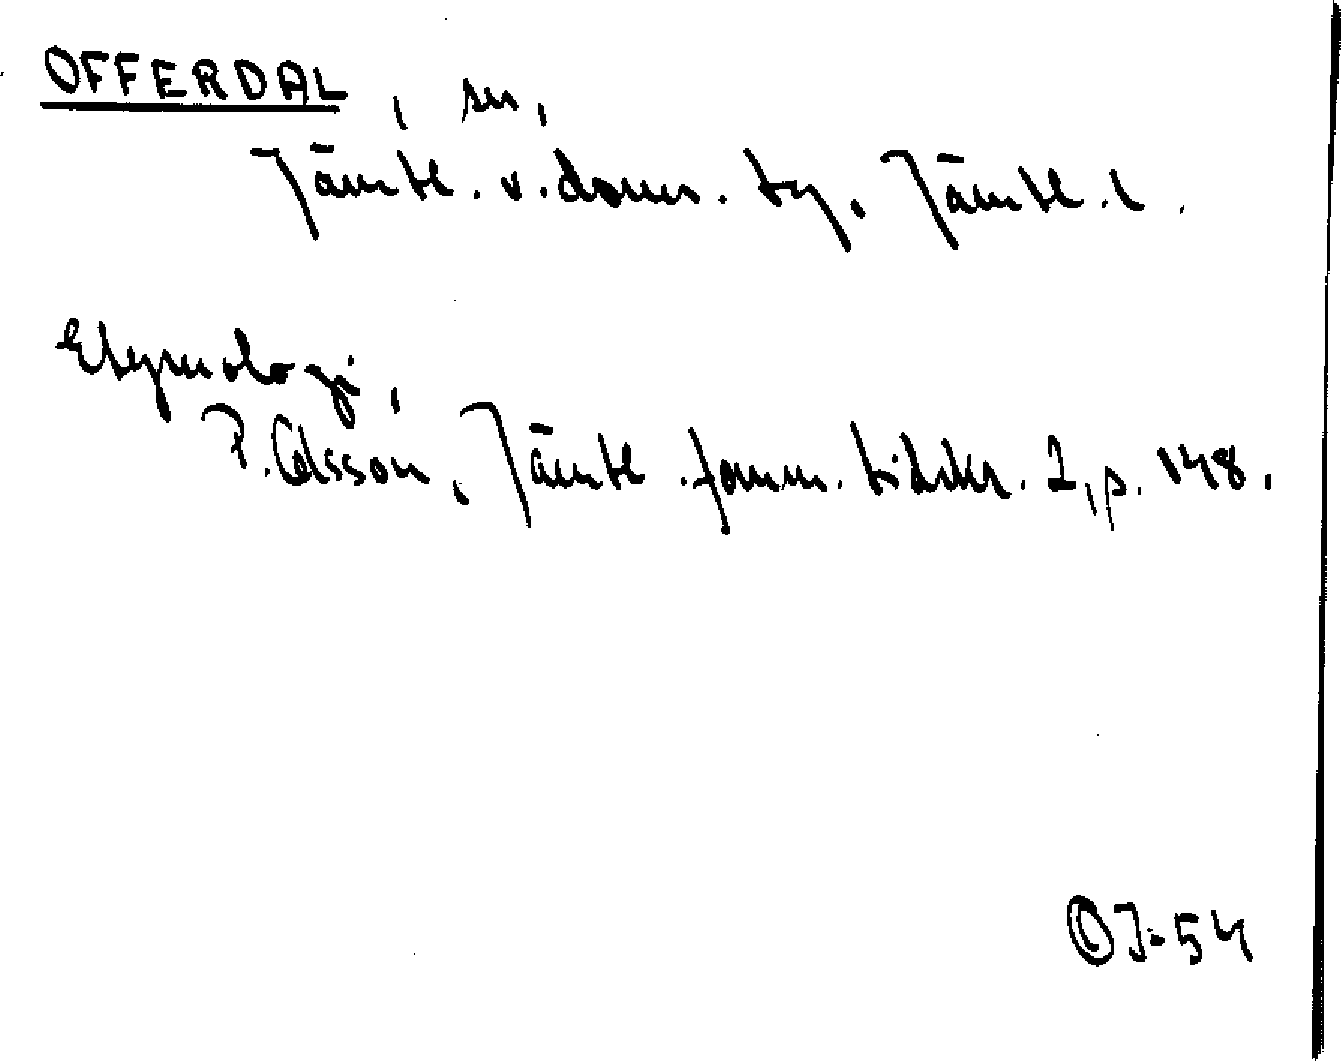 OFFERDAL, sn,
Jämtl. v. doms. tg, Jämtl. l.
Etymologi,
P. Olsson, Jämtl. fornm. tidskr. 2, p. 148.
J-54